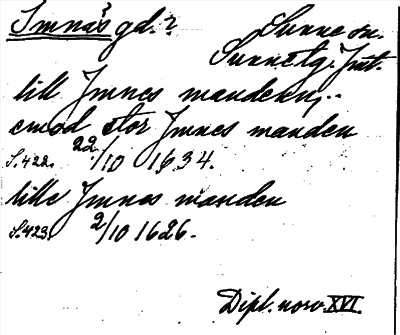 Imnäs gd.?
Sunne sn.
Sunne tg. Jmt.
lill Jmnes manden,..
emod stor Jmnes manden
S. 422. 22/10 1634.
lille Jmnes manden
S. 423. 2/10 1626.
Dipl. norv. XVI.